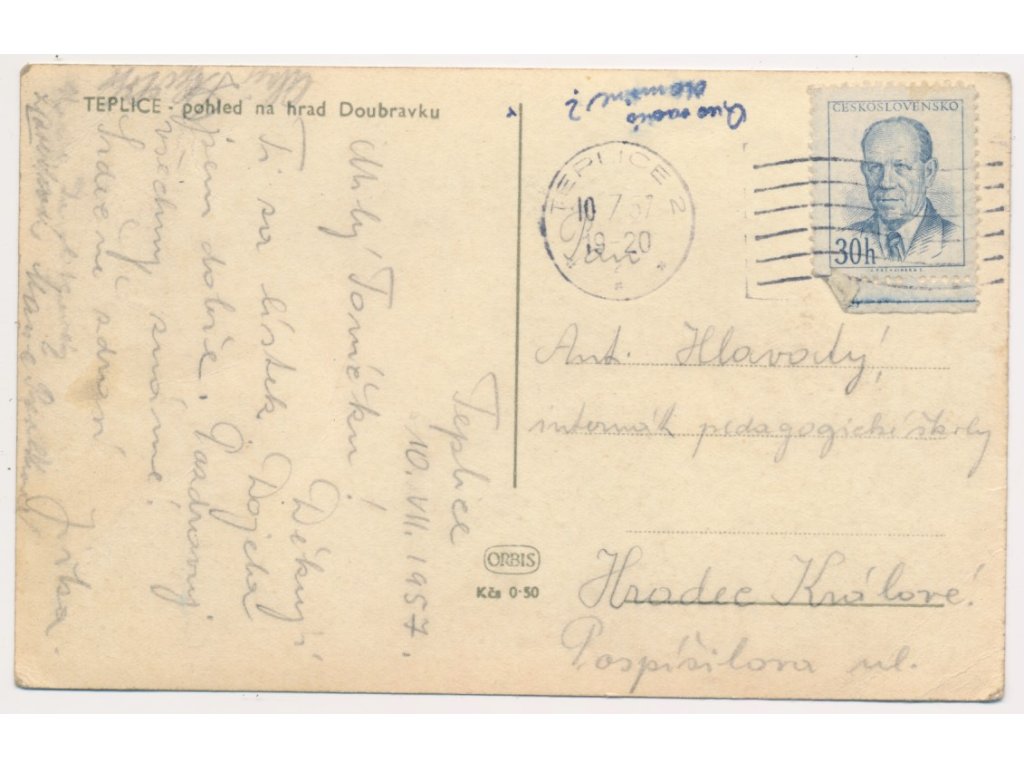 TEPLICE - pohled na hrad Doubravku
Teplice
10. VII. 1957.
Milý Toníčku!
Děkuji
Ti za lístek. Dojela
jsem dobře. Pozdravuj
všechny známé!
Srdečně zdraví
Jitka.
Quo vadis
TEPLICE 2
10 7 57
19-20
Pan
ČESKOSLOVENSKO
30h
Ant. Hlavatý,
internát pedagogické školy
Hradec Králové.
Pospíšilova ul.
ORBIS
Kčs 0·50